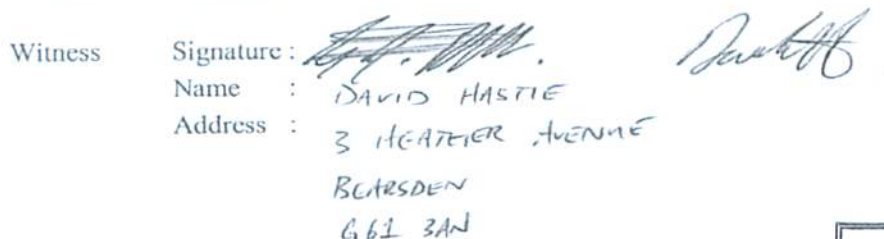 Witness Signature :
Name : DAVID HASTIE
Address : 3 HEATHER AVENUE
BEARSDEN
G61 3AN